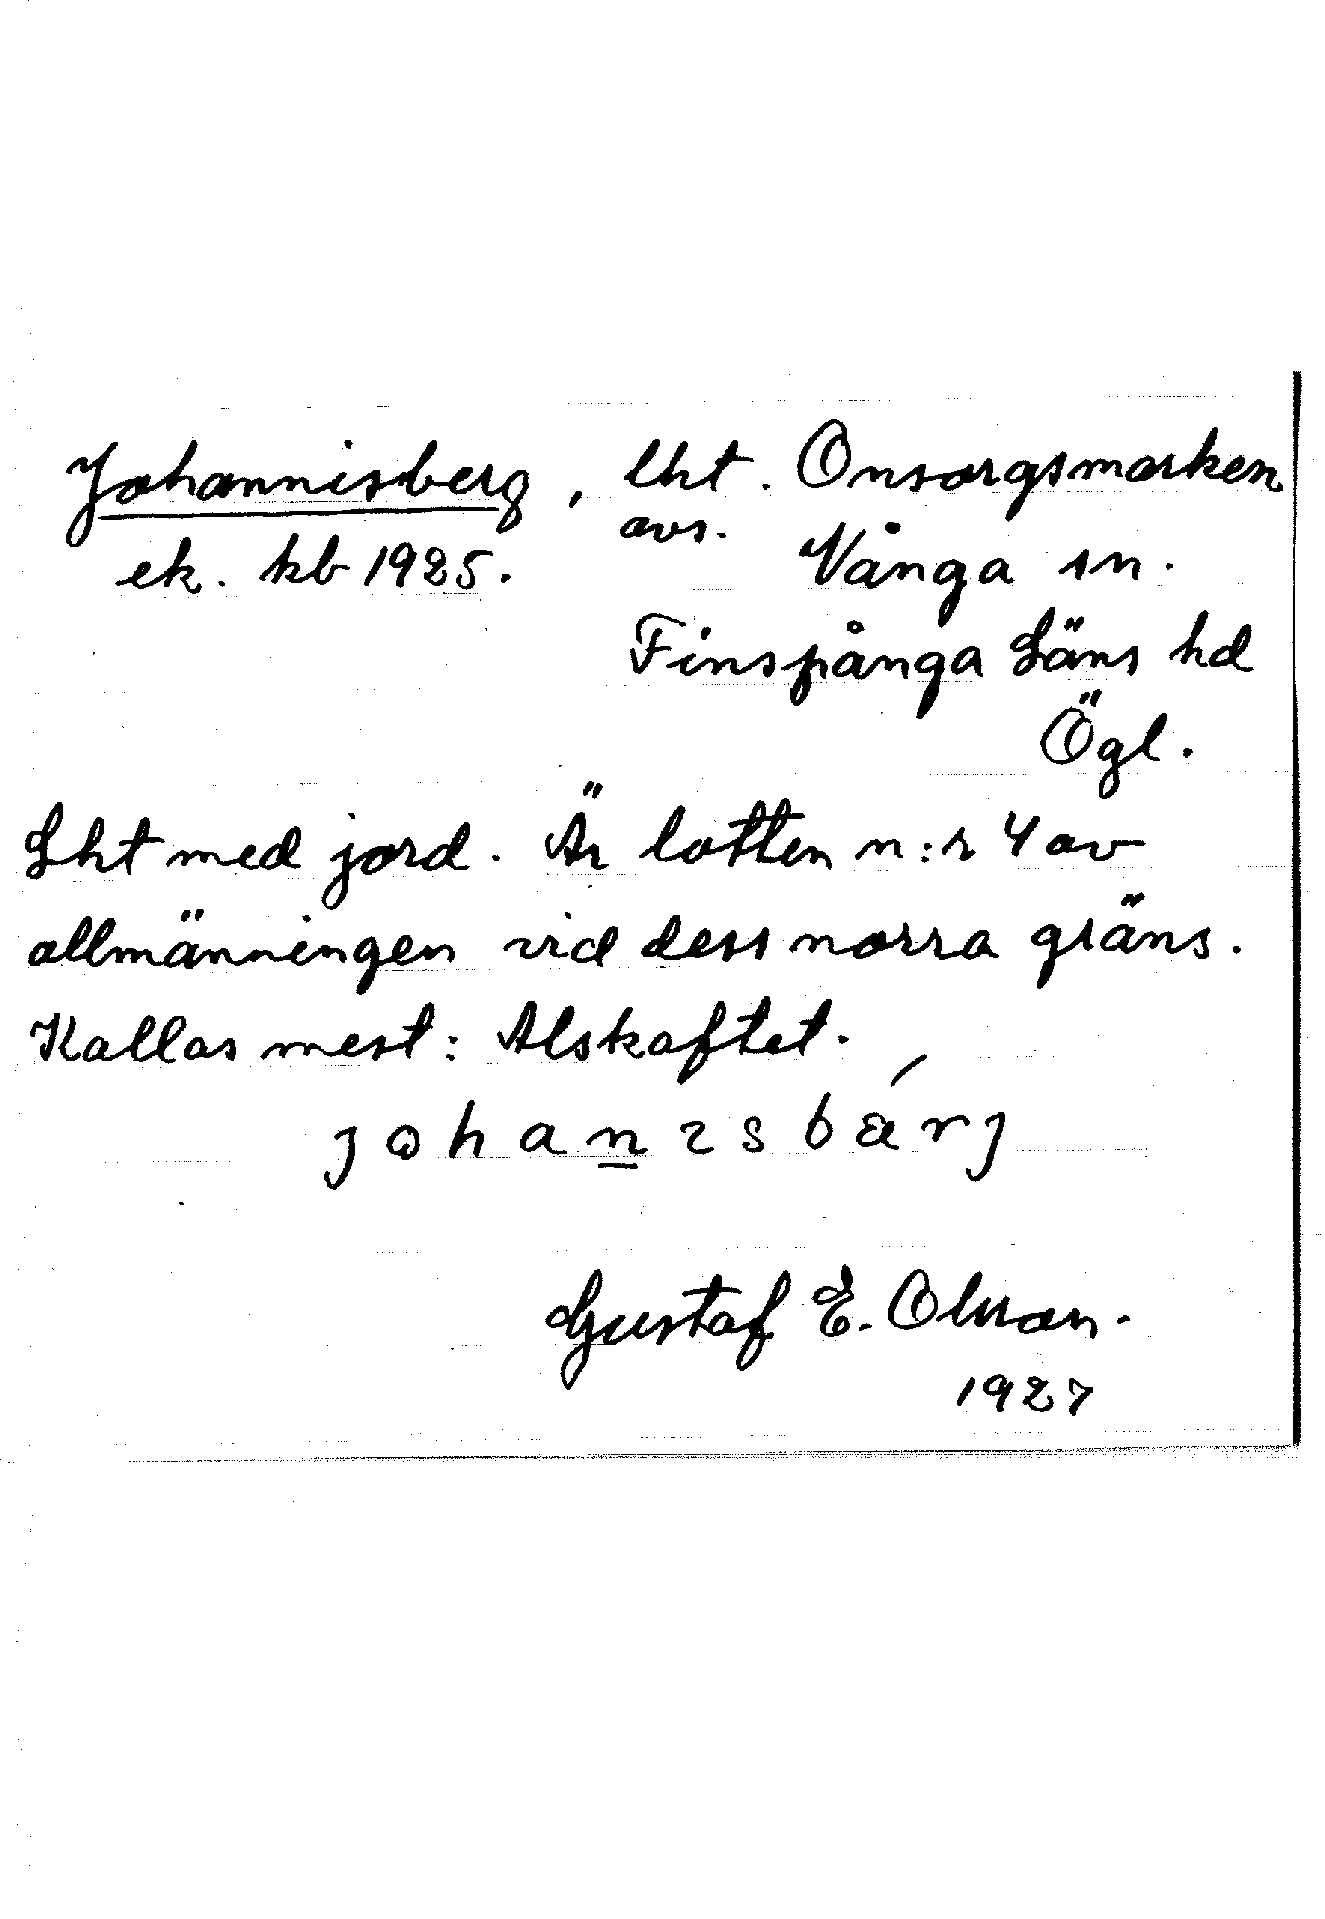 Johannisberg, lht. Onsorgsmarken
avs.
ek. kb 1925. Vånga sn.
Finspånga Läns hd
Ögl.
Lht med jord. Är lotten n:r 4 av
allmänningen vid dess norra gräns.
Kallas mest: Alskaftet.
johanɩsbǽrj
Gustaf E. Olsson.
1927